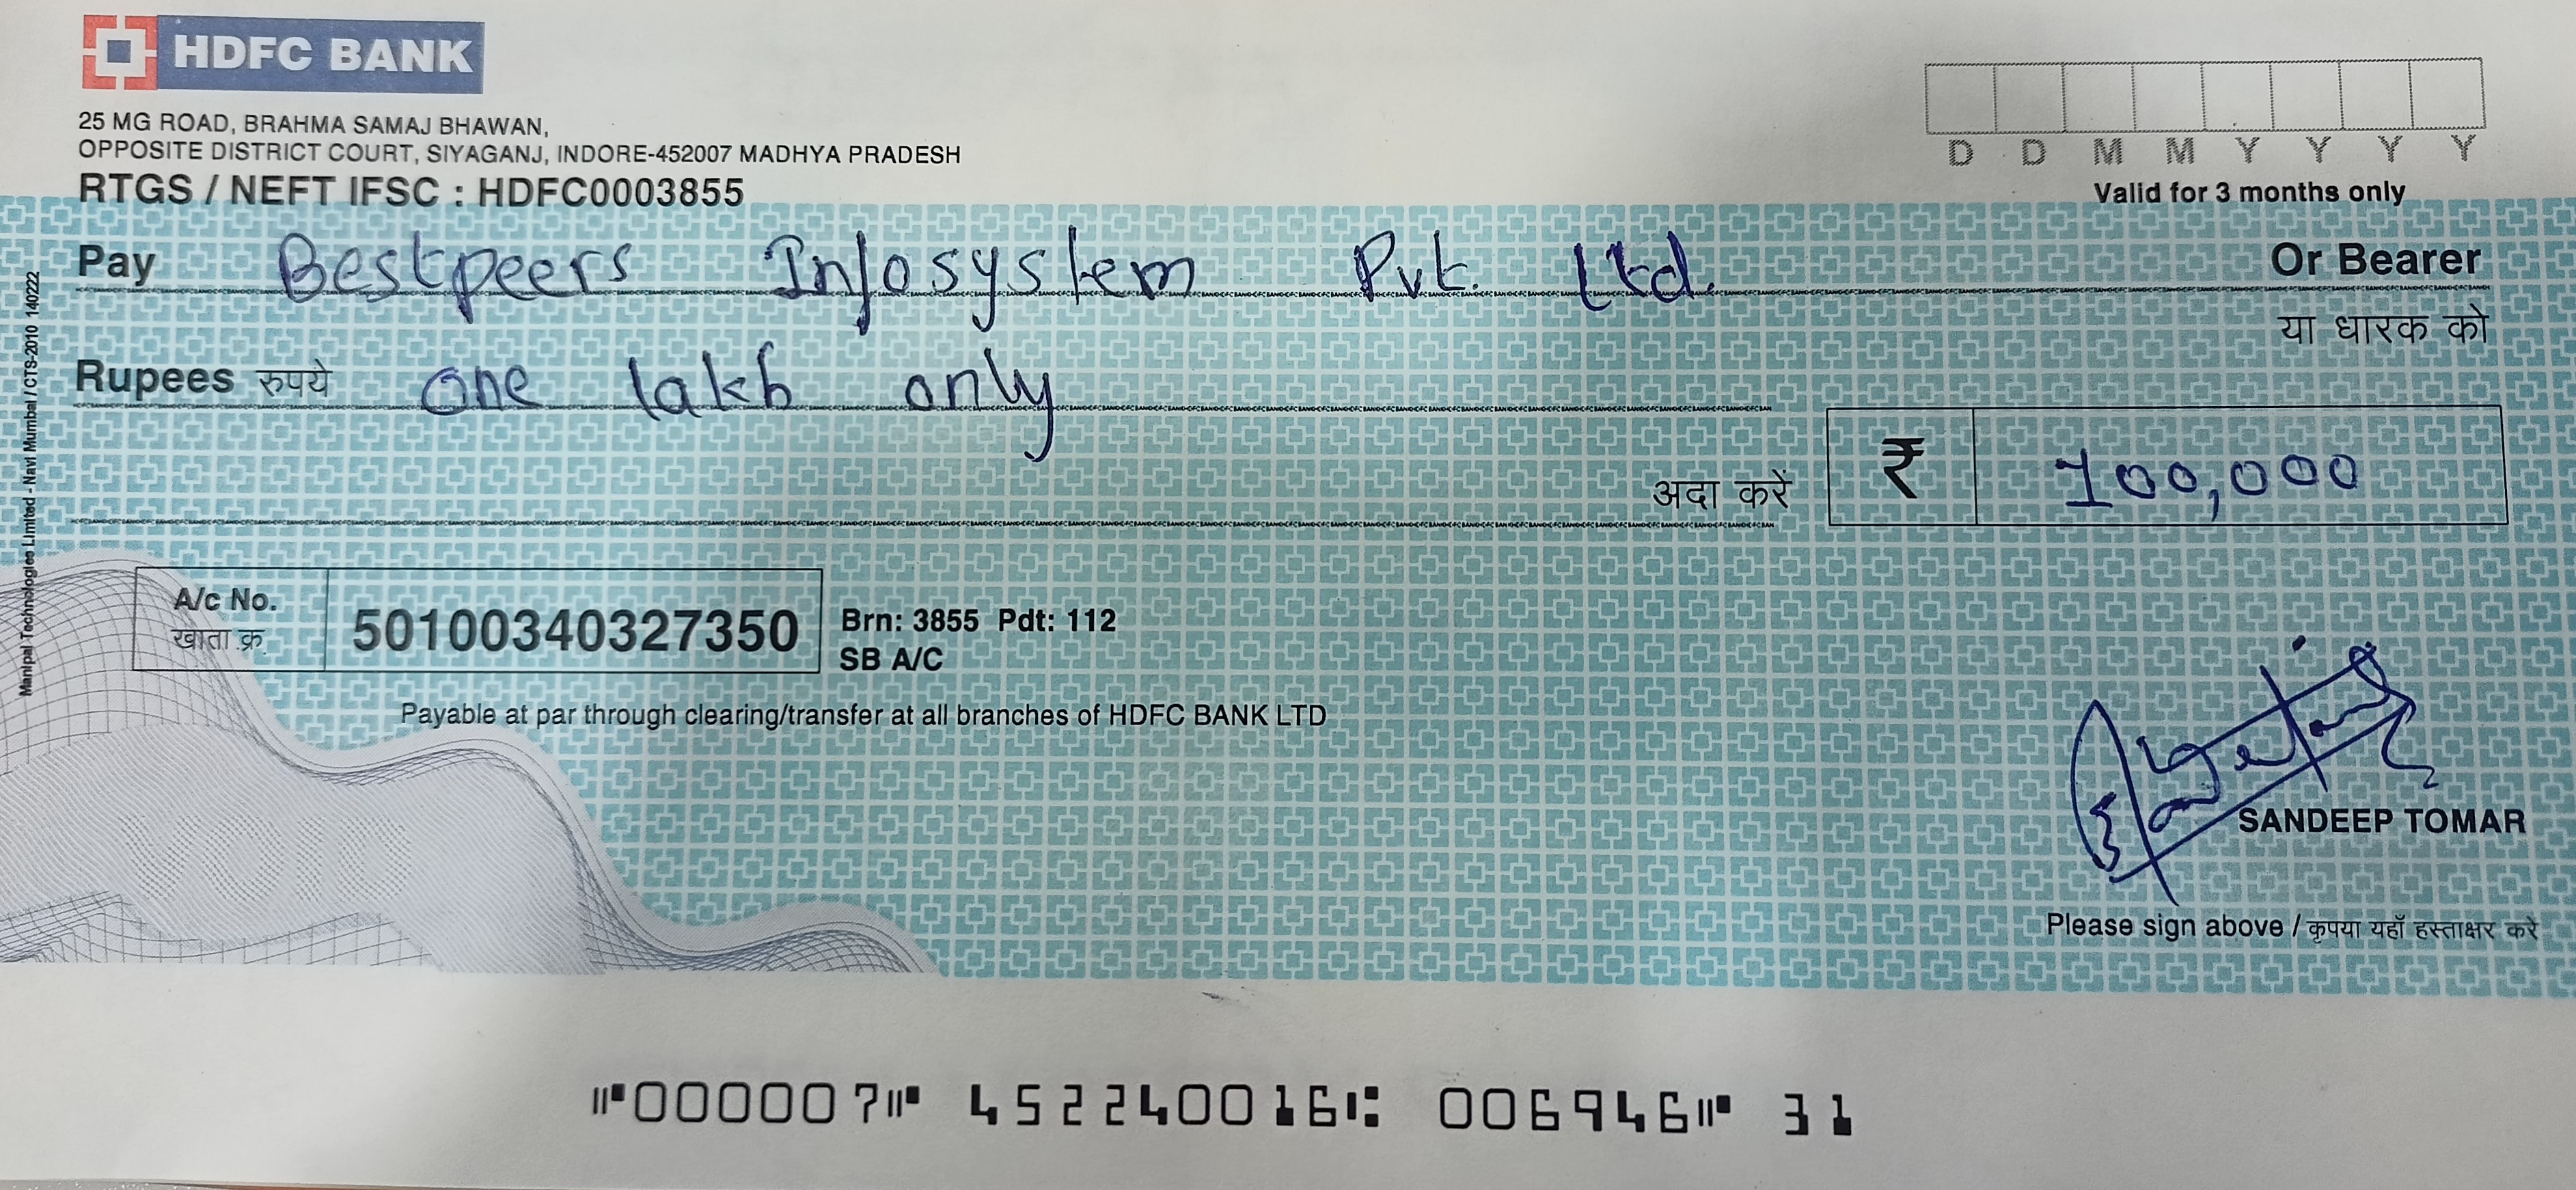 HDFC BANK
25 MG ROAD, BRAHMA SAMAJ BHAWAN,
OPPOSITE DISTRICT COURT, SIYAGANJ, INDORE-452007 MADHYA PRADESH
RTGS / NEFT IFSC : HDFC0003855
D D M M Y Y Y Y
Valid for 3 months only
Pay Bestpeers Infosystem Pvt. Ltd. Or Bearer
या धारक को
Rupees रुपये one lakh only
अदा करें ₹ 100,000
A/c No.
खाता क्र.
50100340327350
Brn: 3855 Pdt: 112
SB A/C
Payable at par through clearing/transfer at all branches of HDFC BANK LTD
SANDEEP TOMAR
Please sign above / कृपया यहाँ हस्ताक्षर करे
Manipal Technologies Limited - Navi Mumbai / CTS-2010 140222
⑈000007⑈ 452240016⑆ 006946⑈ 31